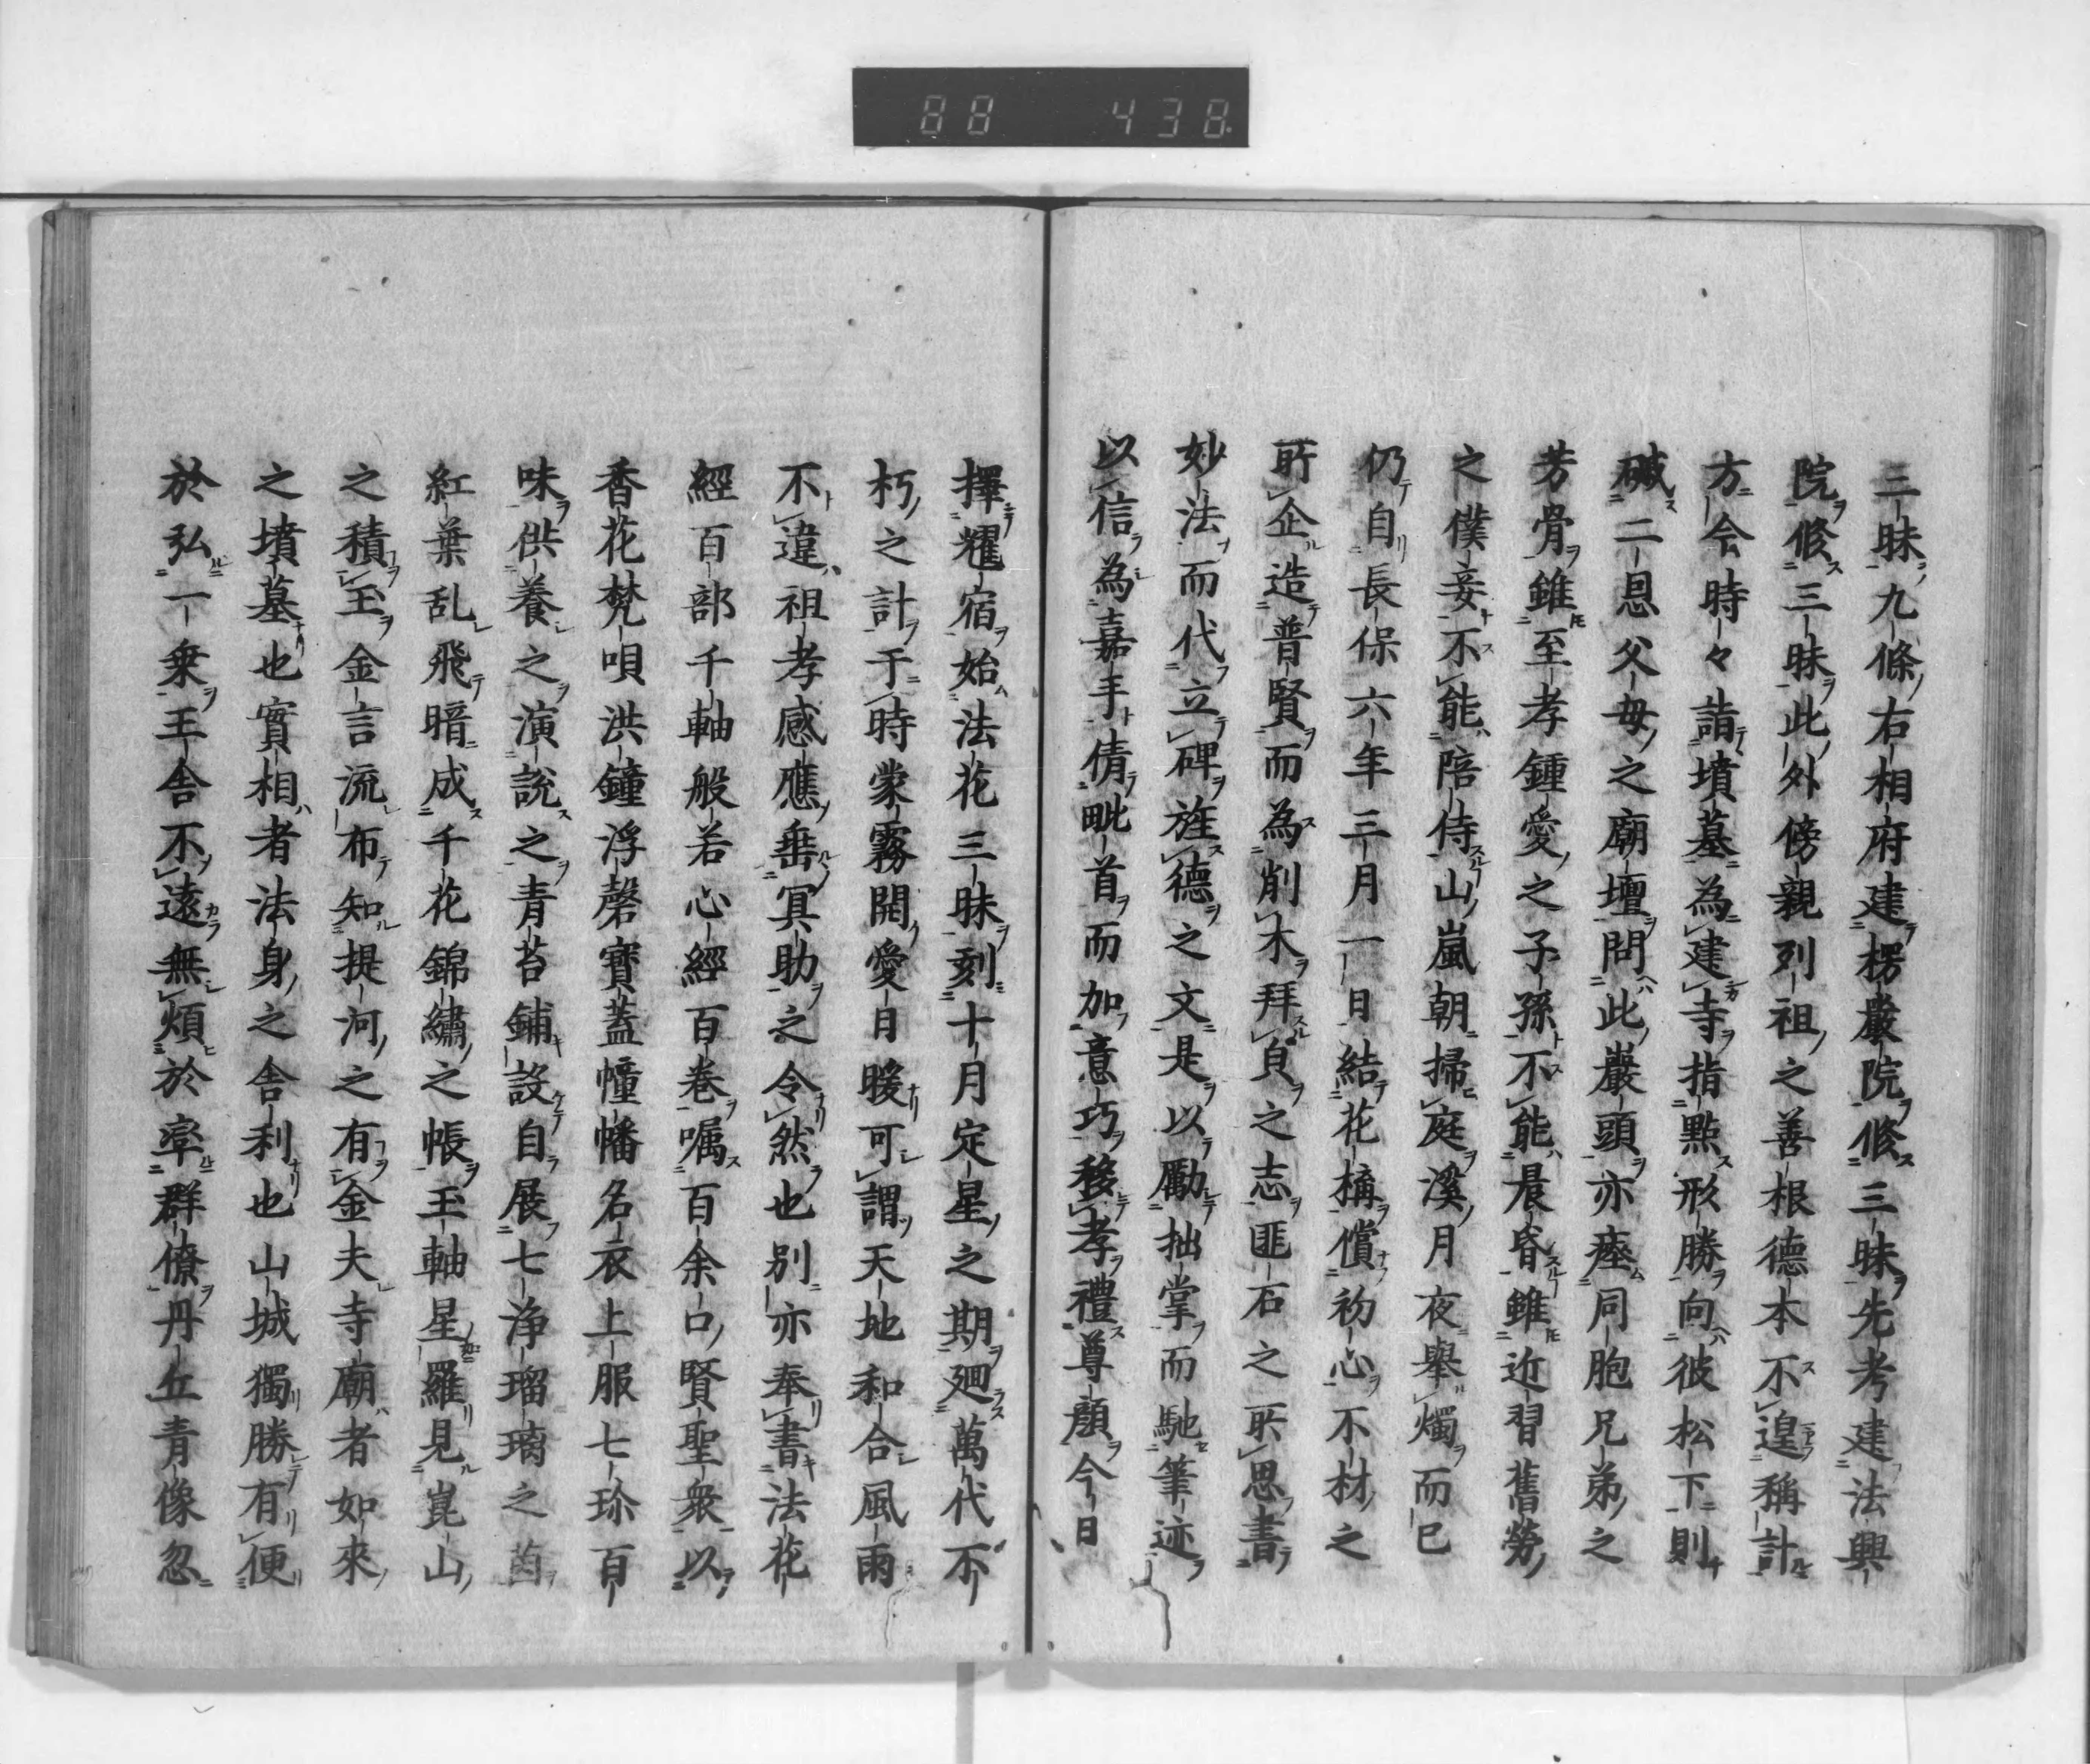 88 438
三昧九條右相府建楞嚴院修三昧先考建法興
院修三昧此外傍親列祖之善根德本不遑稱計
方今時々詣墳墓為建寺指點形勝向彼松下則
碱二恩父母之廟壇問此巖頭亦瘞同胞兄弟之
芳骨雖至孝鍾愛之子孫不能晨昏雖近習舊勞
之僕妾不能陪侍山嵐朝掃庭溪月夜舉燭而已
仍自長保六年三月一日結花構償初心不材之
所企造普賢而為削木拜貞之志匪石之所思書
妙法而代立碑旌德之文是以勵拙掌而馳筆迹
以信為嘉手倩毗首而加意巧移孝禮尊顏今日
擇耀宿始法花三昧刻十月定星之期廻萬代不
朽之計于時蒙霧開愛日暖可謂天地和合風雨
不違祖孝感應垂冥助之令然也別亦奉書法花
經百部千軸般若心經百卷嘱百余口賢聖衆以
香花梵唄洪鐘浮磬寶蓋幢幡名衣上服七珍百
味供養之演說之青苔鋪設自展七浄瑠璃之茵
紅葉乱飛暗成千花錦繡之帳玉軸星羅見崑山
之積玉金言流布知提河之有金夫寺廟者如來
之墳墓也實相者法身之舎利也山城獨勝有便
於弘一乗王舎不遠無煩於率群僚丹丘青像忽